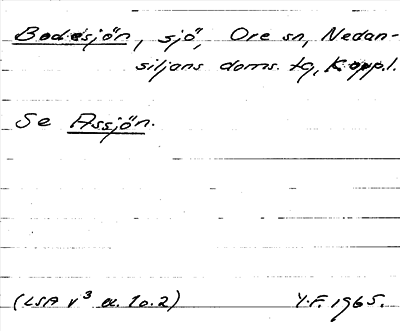 Bodesjön, sjö, Ore sn, Nedan-
siljans doms. tg, Koppl.
Se Assjön.
(LSA v³ a. 1o.2)
Y.F. 1965.